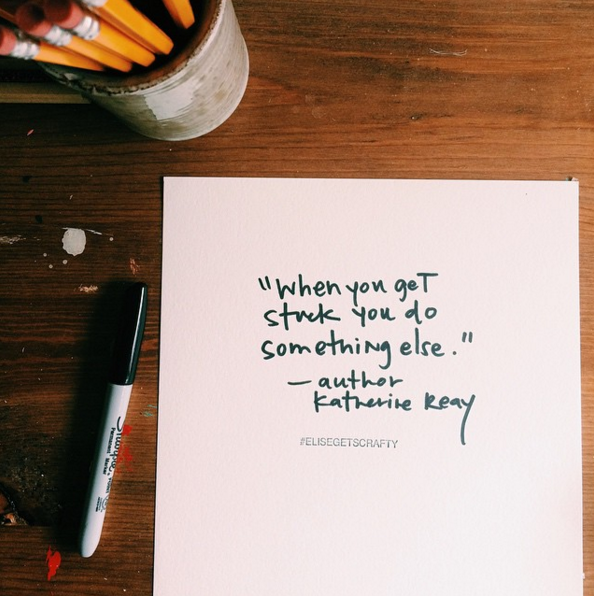 "when you get
stuck you do
something else."
— author
Katherine Reay
#ELISEGETSCRAFTY
Sharpie
Permanent Marker